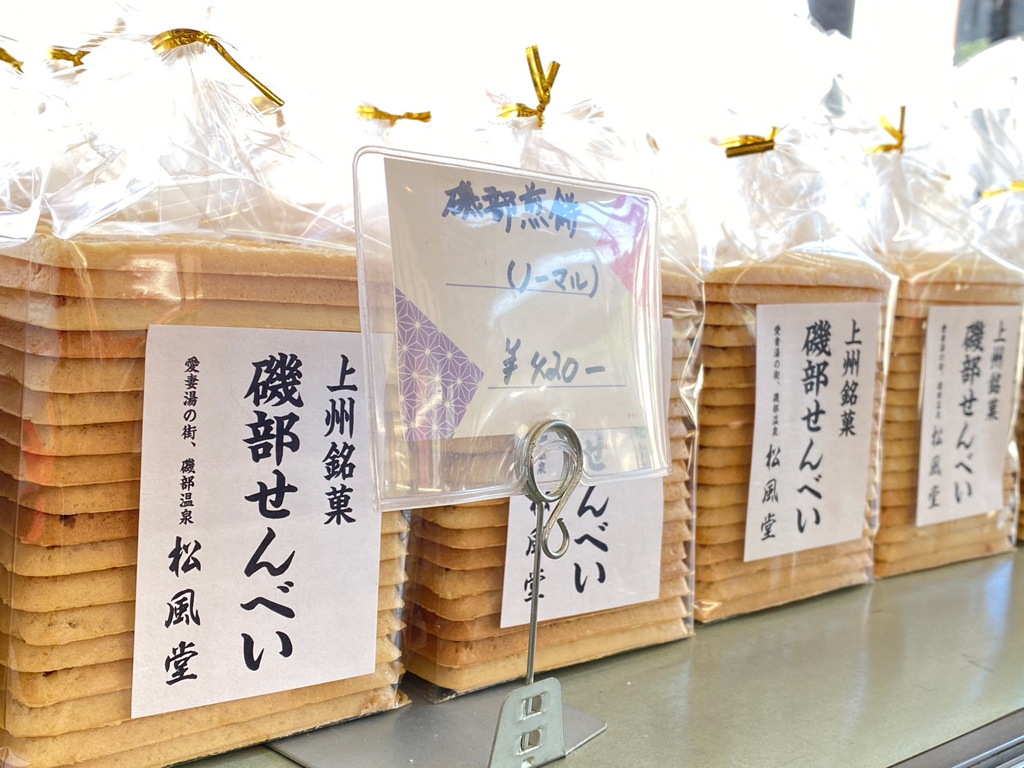 上州銘菓
磯部せんべい
愛妻湯の街、磯部温泉
松風堂
磯部煎餅
(ノーマル)
¥420ー
せ
んべい
泉
風堂
上州銘菓
磯部せんべい
愛妻湯の街、磯部温泉
松風堂
上州銘菓
磯部せんべい
愛妻湯の街、磯部温泉
松風堂